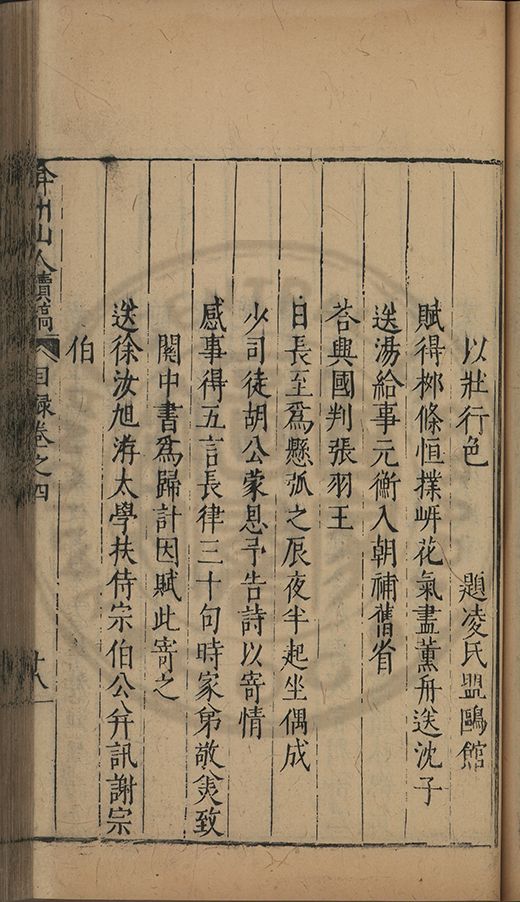 以壯行色　題凌氏盟鷗館
賦得桺條恒撲岍花氣盡薰舟送沈子
送湯給事元衡入朝補舊省
荅興國判張羽王
日長至爲懸弧之辰夜半起坐偶成
少司徒胡公蒙恩予告詩以寄情
感事得五言長律三十句時家弟敬美致
關中書爲歸計因賦此寄之
送徐汝旭游太學扶侍宗伯公弁訊謝宗
伯
弇州山人續稿
目錄卷之四
廿八